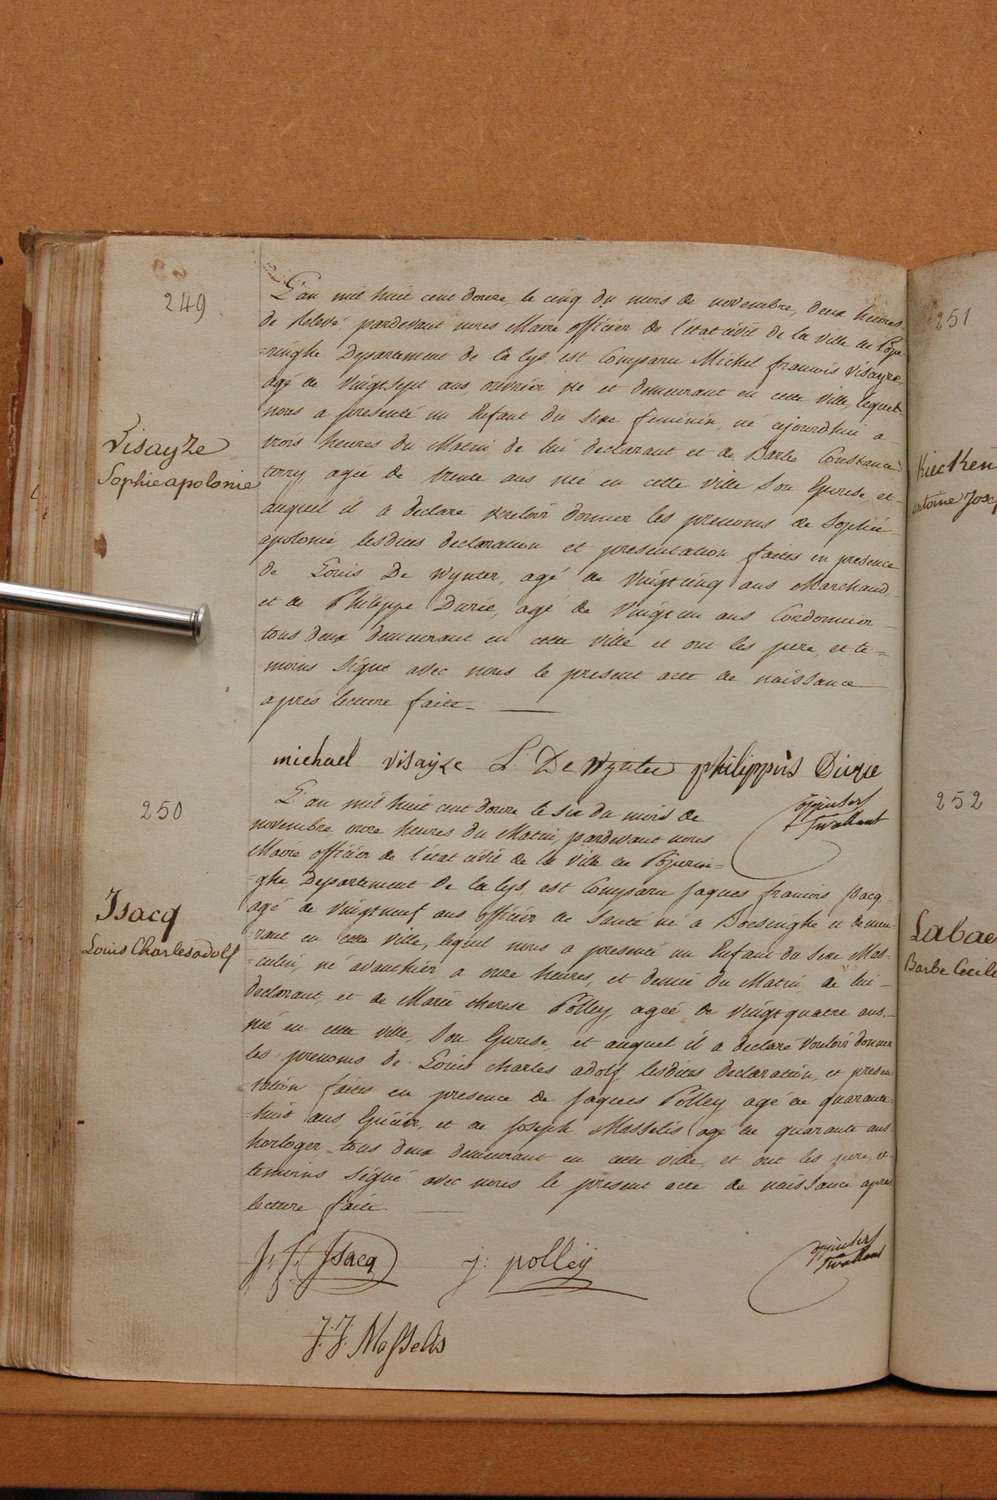 249
Visayze
Sophie apolonie
L'an mil huit cent douze, le cinq du mois de novembre, deux heures
de Relevé pardevant nous Maire officier de l'état civil de la ville de Pope
=ringhe Departement de la Lys est Comparu Michel francois Visayze,
agé de Vingtsept ans, ouvrier né et demeurant en cette ville, lequel
nous a presenté un Enfant du Sexe feminin, né cejourdhui a
trois heures du Matin de lui declarant et de Barbe Constance
agée de trente ans née en cette ville Son Epouse, et
auquel il a declaré vouloir donner les prenoms de Sophie
apolonie lesdites declaration et presentation faites en presence
de Louis De Wynter, agé de Vingtcinq ans Marchand,
et de Philippe Durie, agé de Vingtun ans Cordonnier
tous deux demeurant en cette ville et ont les pere, et te=
moins Signé avec nous le present acte de naissance
après lecture faite.
michael visayze L: De Wynter philippus Durie
250
Isacq
Louis Charles adolf
L'an mil huit cent douze le six du mois de
novembre, onze heures du Matin, pardevant nous
Maire officier de l'état civil de la Ville de Poperin=
=ghe, Departement de la Lys, est Comparu Jaques francois Isacq
agé de Vingtneuf ans officier de Santé né a Boesinghe et demeu
=rant en cette Ville, lequel nous a presenté un Enfant du Sexe Mas=
=culin, né avanthier a onze heures, et demie du Matin de lui
declarant, et de Marie therese Polley, agée de Vingtquatre ans,
née en cette ville, Son Epouse, et auquel il a declaré Vouloir donner
les prenoms de Louis charles adolf, lesdites declaration, et presen
tation faites en presence de Jaques Polley agé de quarante
huit ans, Epicier, et de Joseph Masselis agé de quarante ans
horloger, tous deux demeurant en cette ville, et ont les pere, et
temoins Signé avec nous le present acte de naissance après
lecture faite.
J: f: Isacq j: polley
J: J: Masselis
251
antoine Josep
252
Labae
Barbe Cecile